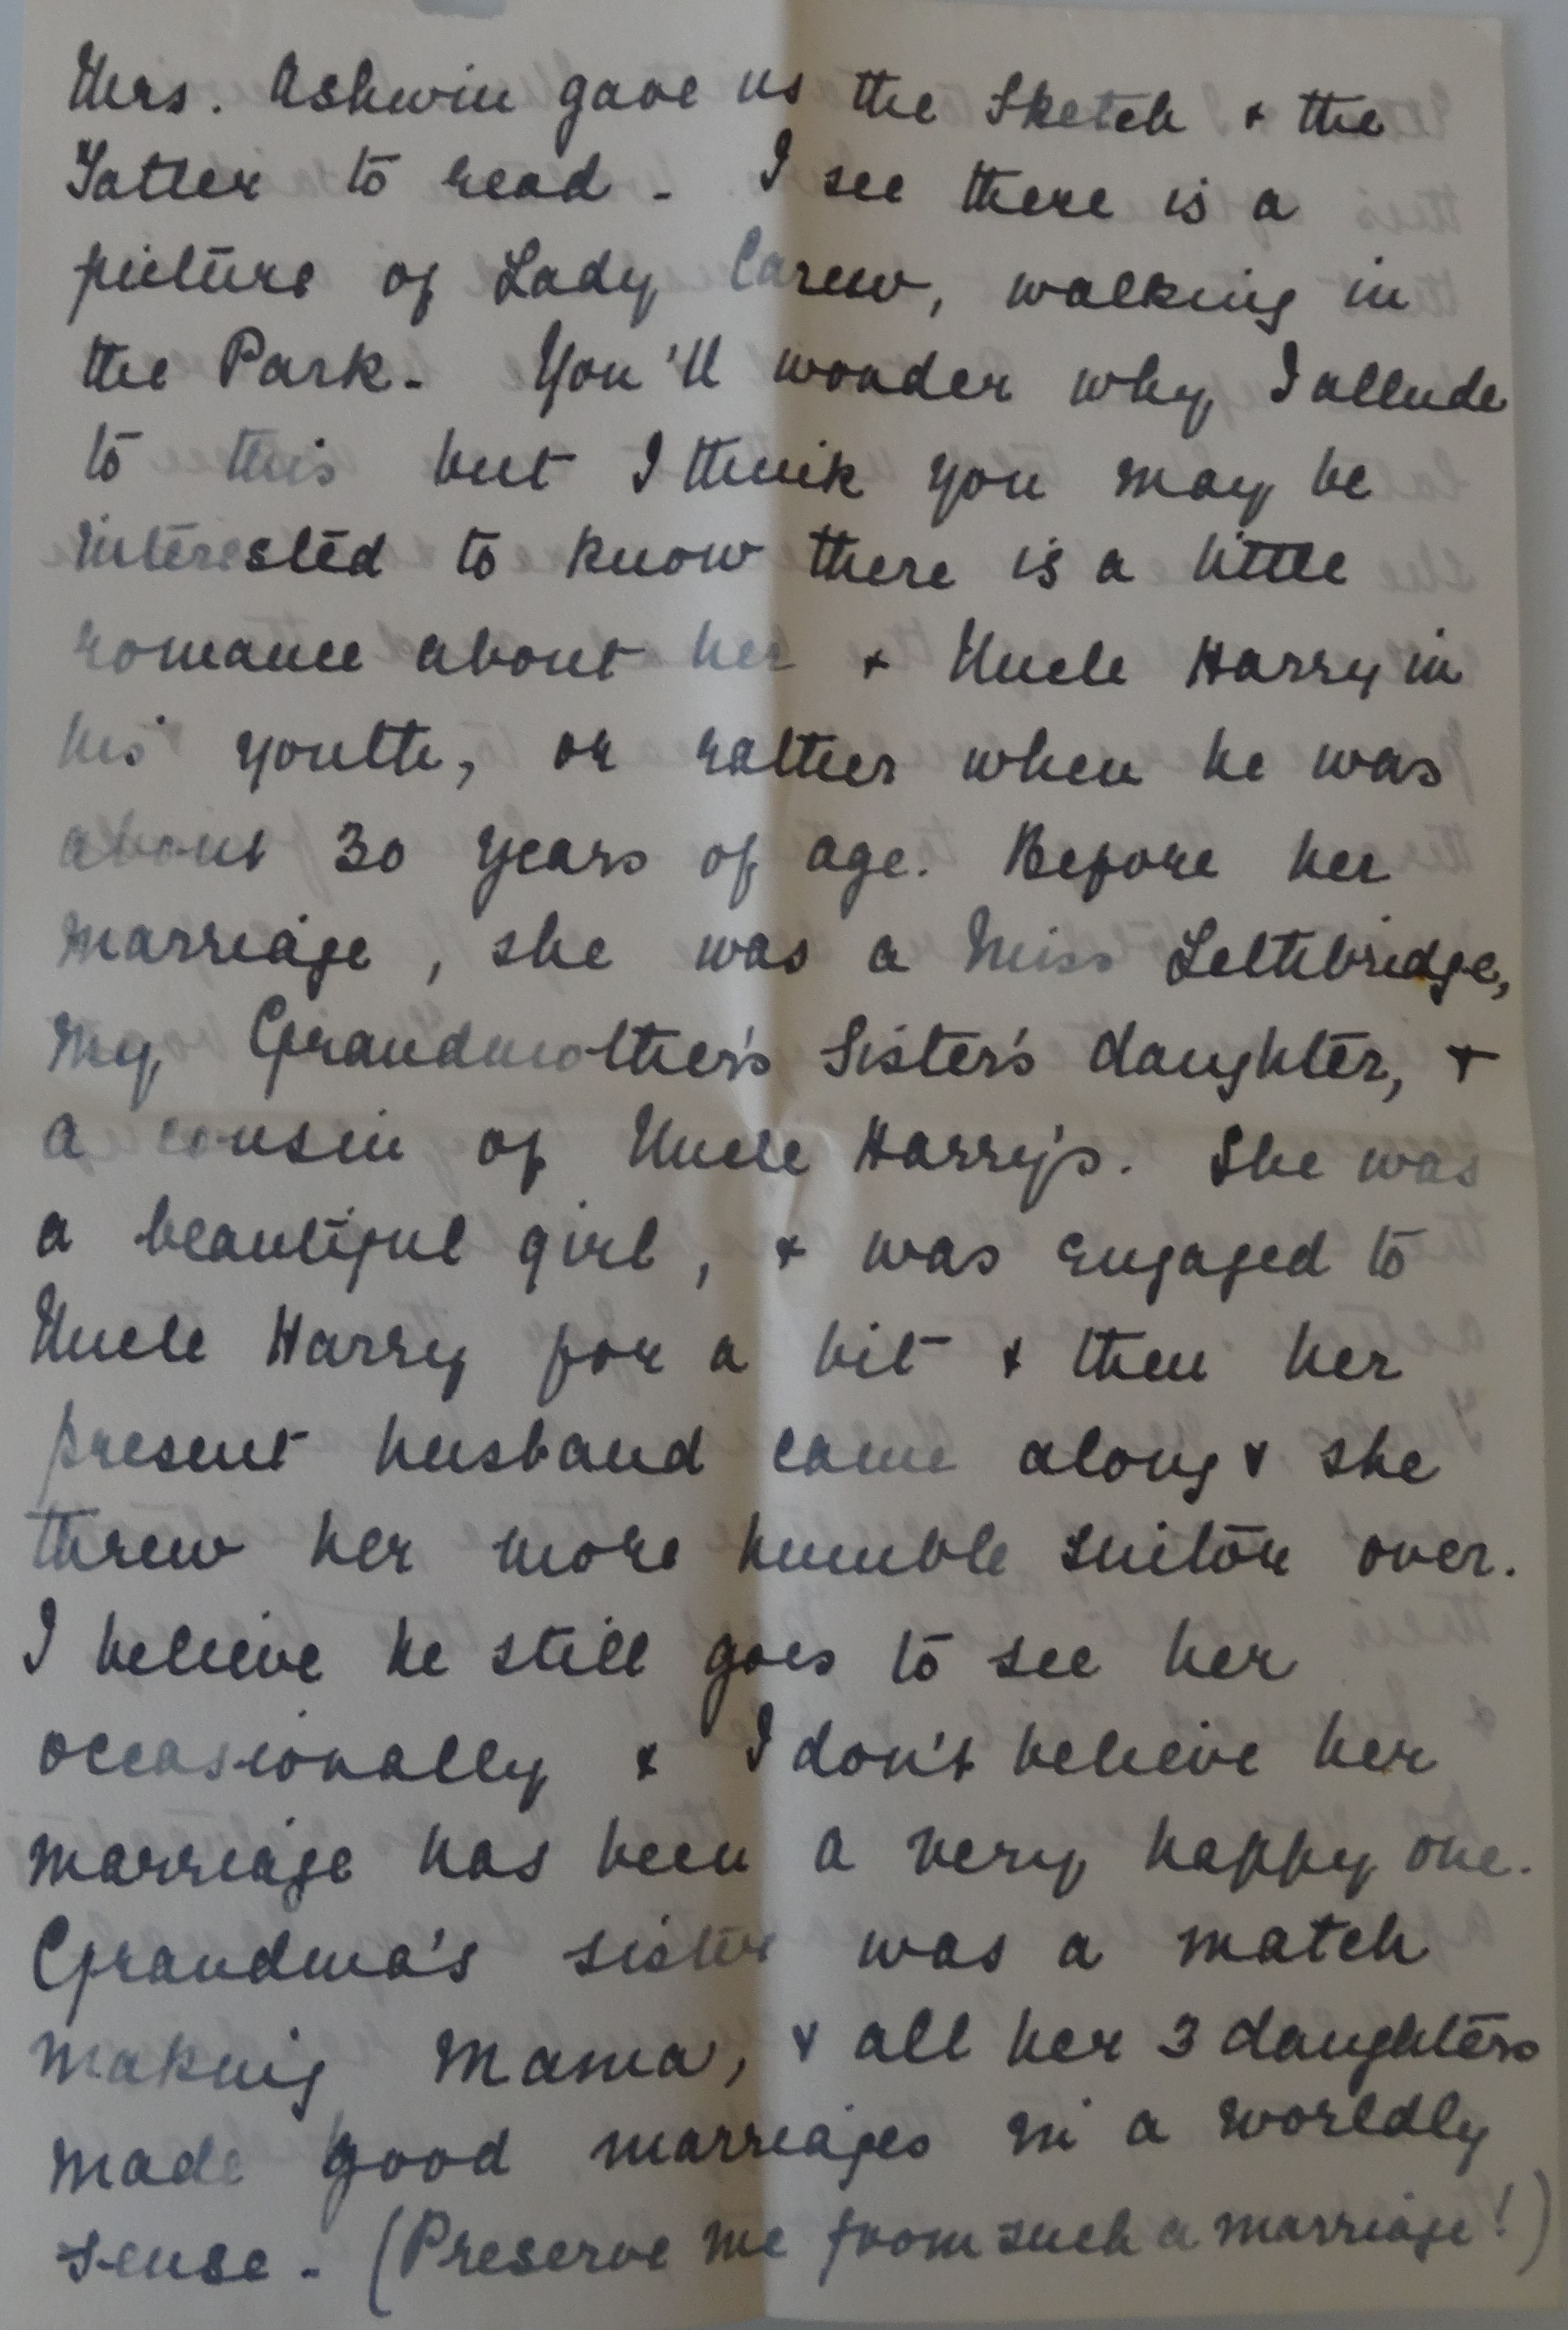 Mrs. Ashwin gave us the Sketch & the
Tatler to read - I see there is a
picture of Lady Carew, walking in
the Park - You'll wonder why I allude
to this but I think you may be
interested to know there is a little
romance about her & Uncle Harry in
his youth, or rather when he was
about 30 years of age. Before her
marriage, she was a Miss Lethbridge,
my Grandmother's Sister's daughter, &
a cousin of Uncle Harry's. She was
a beautiful girl, & was engaged to
Uncle Harry for a bit & then her
present husband came along & she
threw her more humble suitor over.
I believe he still goes to see her
occasionally & I don't believe her
marriage has been a very happy one.
Grandma's sister was a match
making Mama, & all her 3 daughters
made good marriages in a worldly
sense - (Preserve me from such a marriage!)